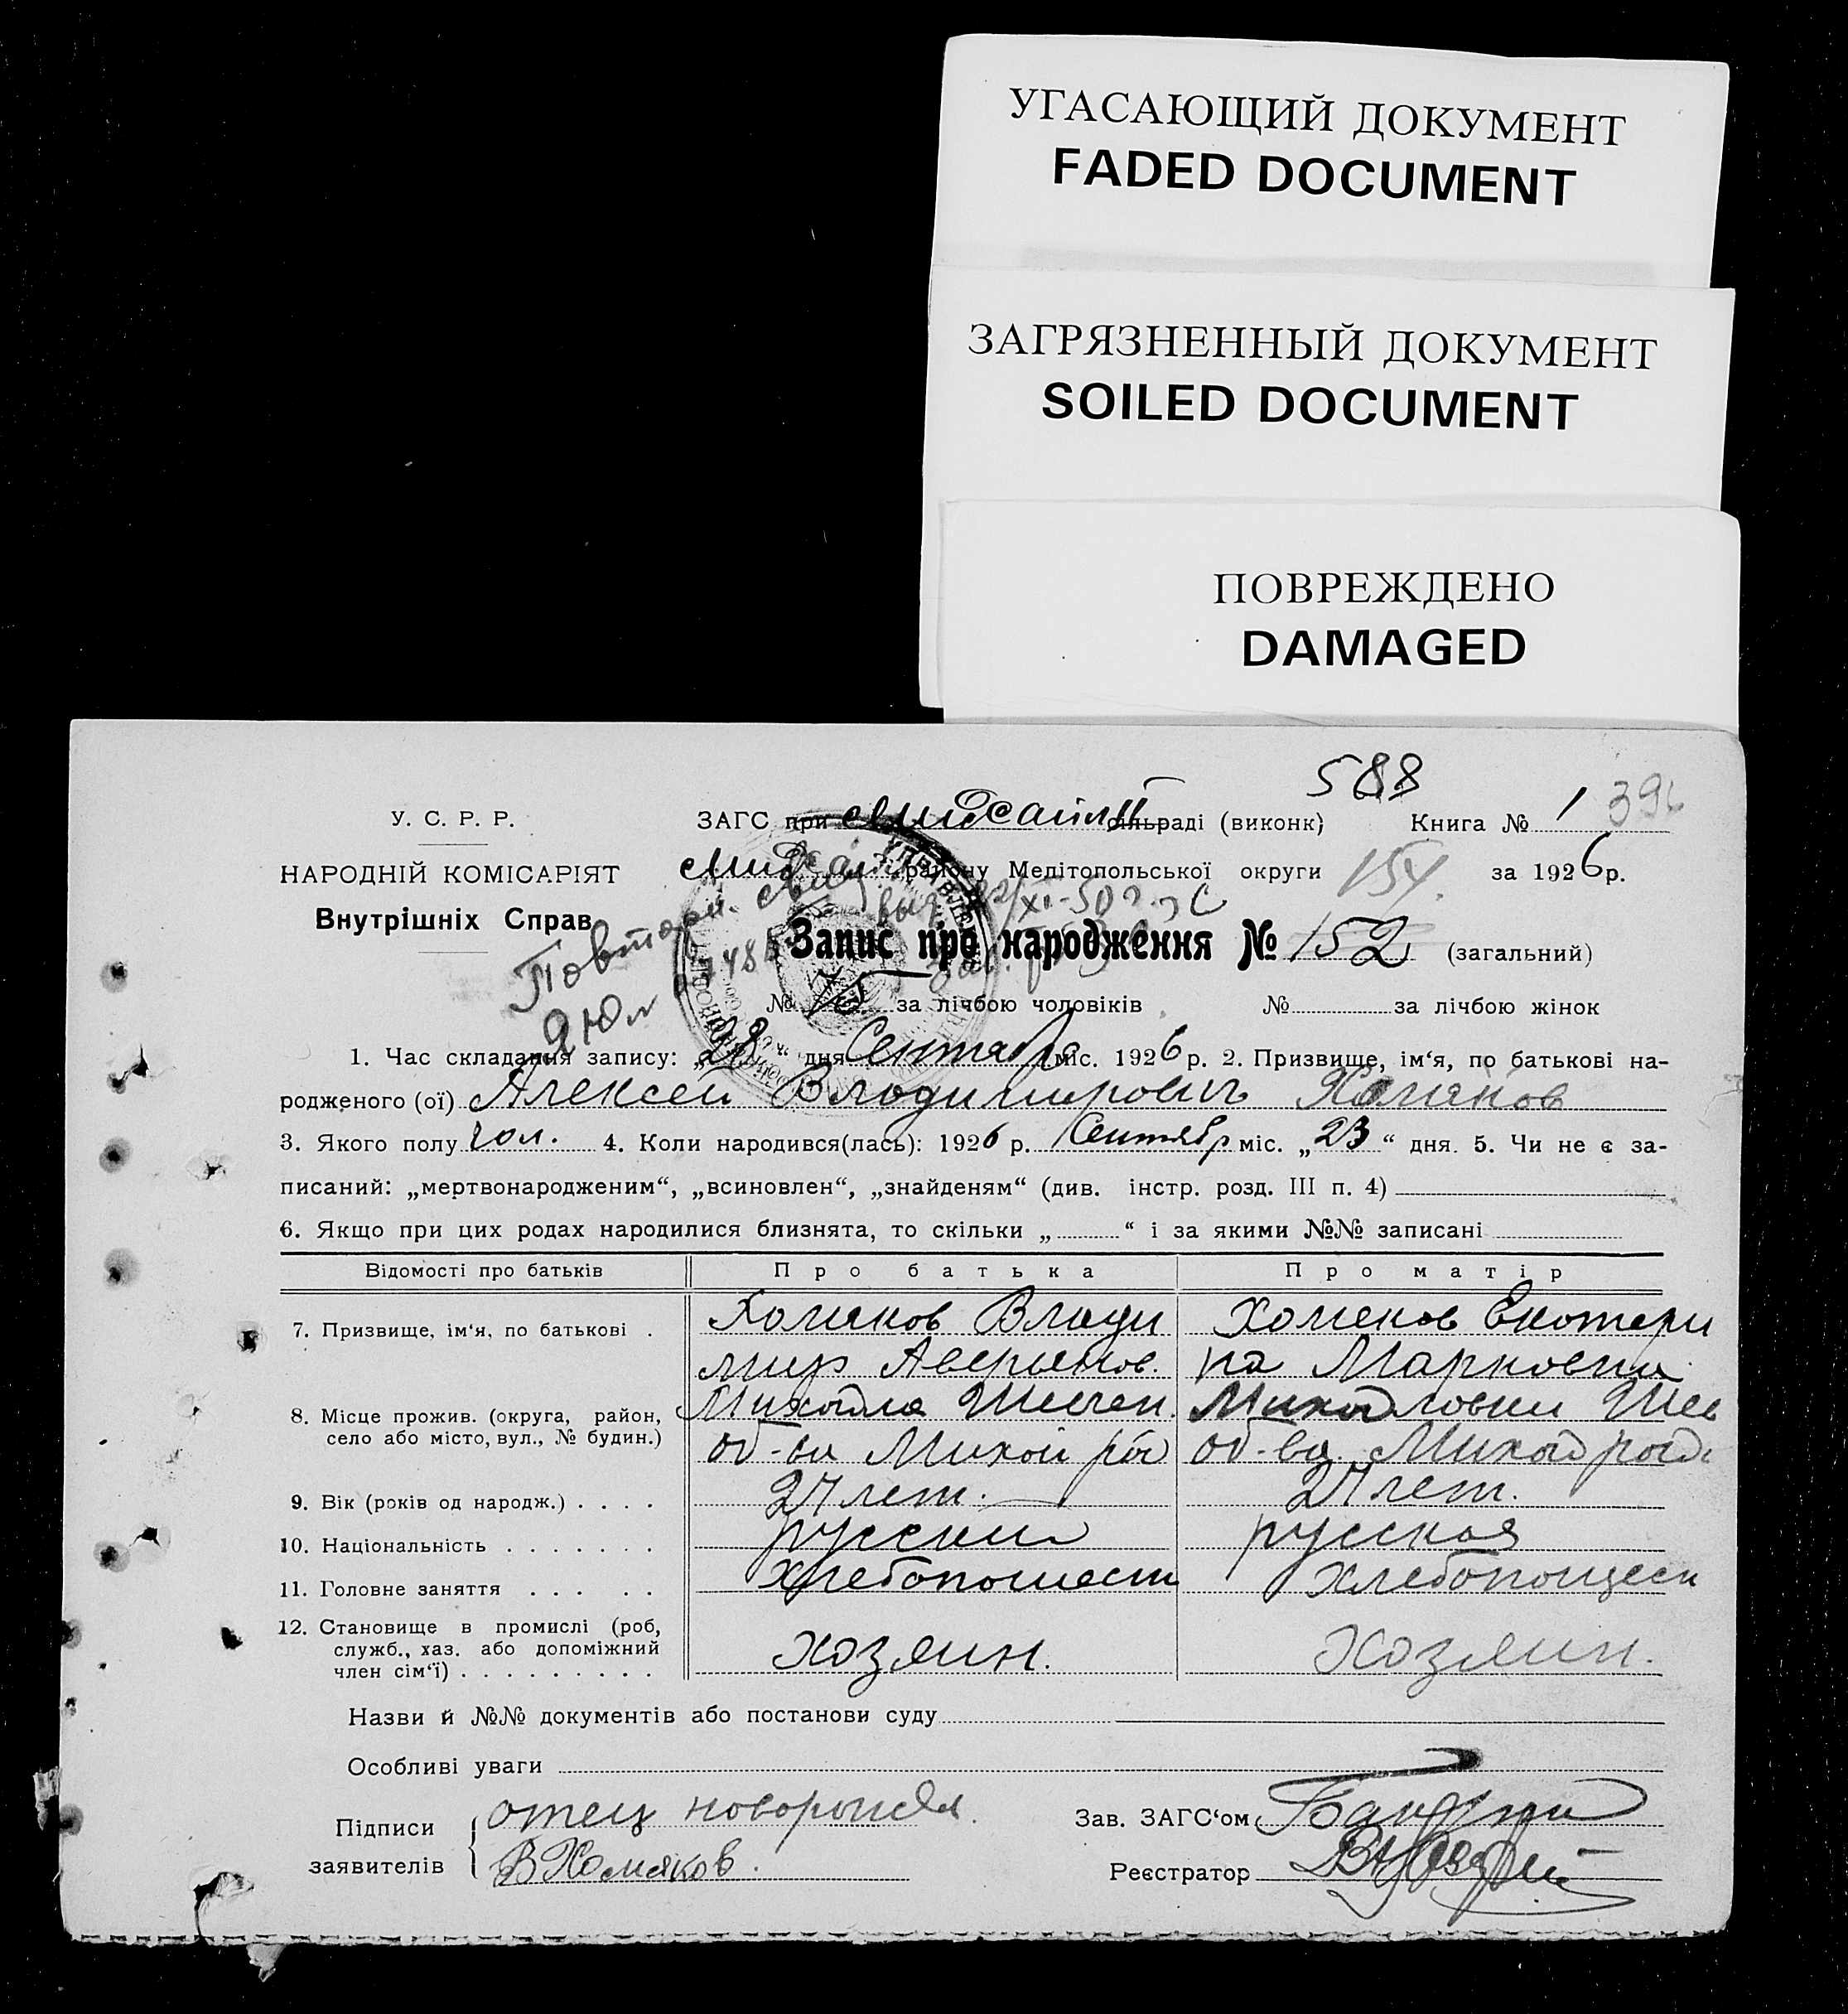 УГАСАЮЩИЙ ДОКУМЕНТ
FADED DOCUMENT
ЗАГРЯЗНЕННЫЙ ДОКУМЕНТ
SOILED DOCUMENT
ПОВРЕЖДЕНО
DAMAGED
588
396
У. С. Р. Р.
ЗАГС при сільраді (виконк) Книга № 1
НАРОДНІЙ КОМІСАРІЯТ
району Мелітопольської округи 154. за 1926 р.
Внутрішніх Справ
Повторн.
Запис про народження № 152 (загальний)
№ 75 за лічбою чоловіків № за лічбою жінок
1. Час складання запису: „28“ дня Сентября міс. 1926 р. 2. Призвище, ім‘я, по батькові на-
родженого (ої) Алексей Владимирович Хомяков
3. Якого полу чол. 4. Коли народився(лась): 1926 р. Сентябр міс. „23“ дня. 5. Чи не є за-
писаний: „мертвонародженим“, „всиновлен“, „знайденям“ (див. інстр. розд. III п. 4)
6. Якщо при цих родах народилися близнята, то скільки „ “ і за якими №№ записані
Відомості про батьків Про батька Про матір
7. Призвище, ім‘я, по батькові . Хомяков Влади Хомяков Екатери
мир Аверьянов. на Марковна
8. Місце прожив. (округа, район,
село або місто, вул., № будин.)
об-ва об-ва
9. Вік (років од народж.) . . . . 27 лет. 27 лет.
10. Національність . . . . . . . русский русская
11. Головне заняття . . . . . Хлебопошест Хлебопощест
12. Становище в промислі (роб,
служб., хаз. або допоміжний
член сім‘ї) . . . . . . . . . хозяин. Хозяин.
Назви й №№ документів або постанови суду
Особливі уваги
Підписи заявителів
отец
В Хомяков.
Зав. ЗАГС‘ом
Реєстратор